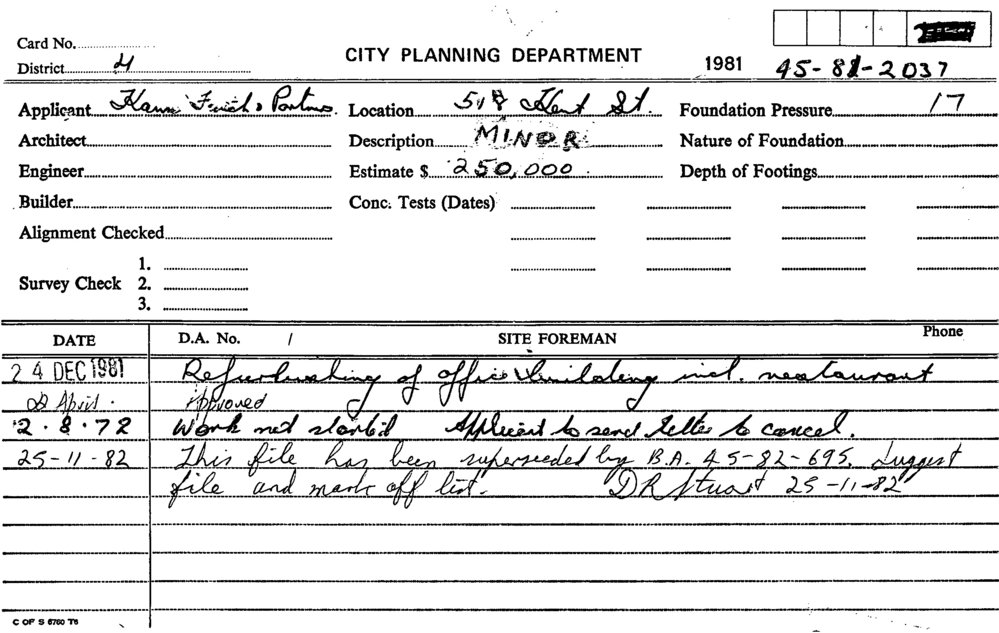 Card No.
CITY PLANNING DEPARTMENT 1981 45-81-2037
District 4
Applicant Hann Finch & Partners Location 518 Kent St. Foundation Pressure 17
Architect Description MINOR Nature of Foundation
Engineer Estimate $ 250,000. Depth of Footings
Builder Conc. Tests (Dates)
Alignment Checked
1.
Survey Check 2.
3.
DATE D.A. No. / SITE FOREMAN Phone
24 DEC 1981 Refurbishing of office building incl. restaurant
22 April. Approved
2.8.72 Work not started Applicant to send letter to cancel.
25-11-82 This file has been superseeded by B.A. 45-82-695. Suggest
file and mark off list. D R Stuart 25-11-82
C OF S 6760 T6